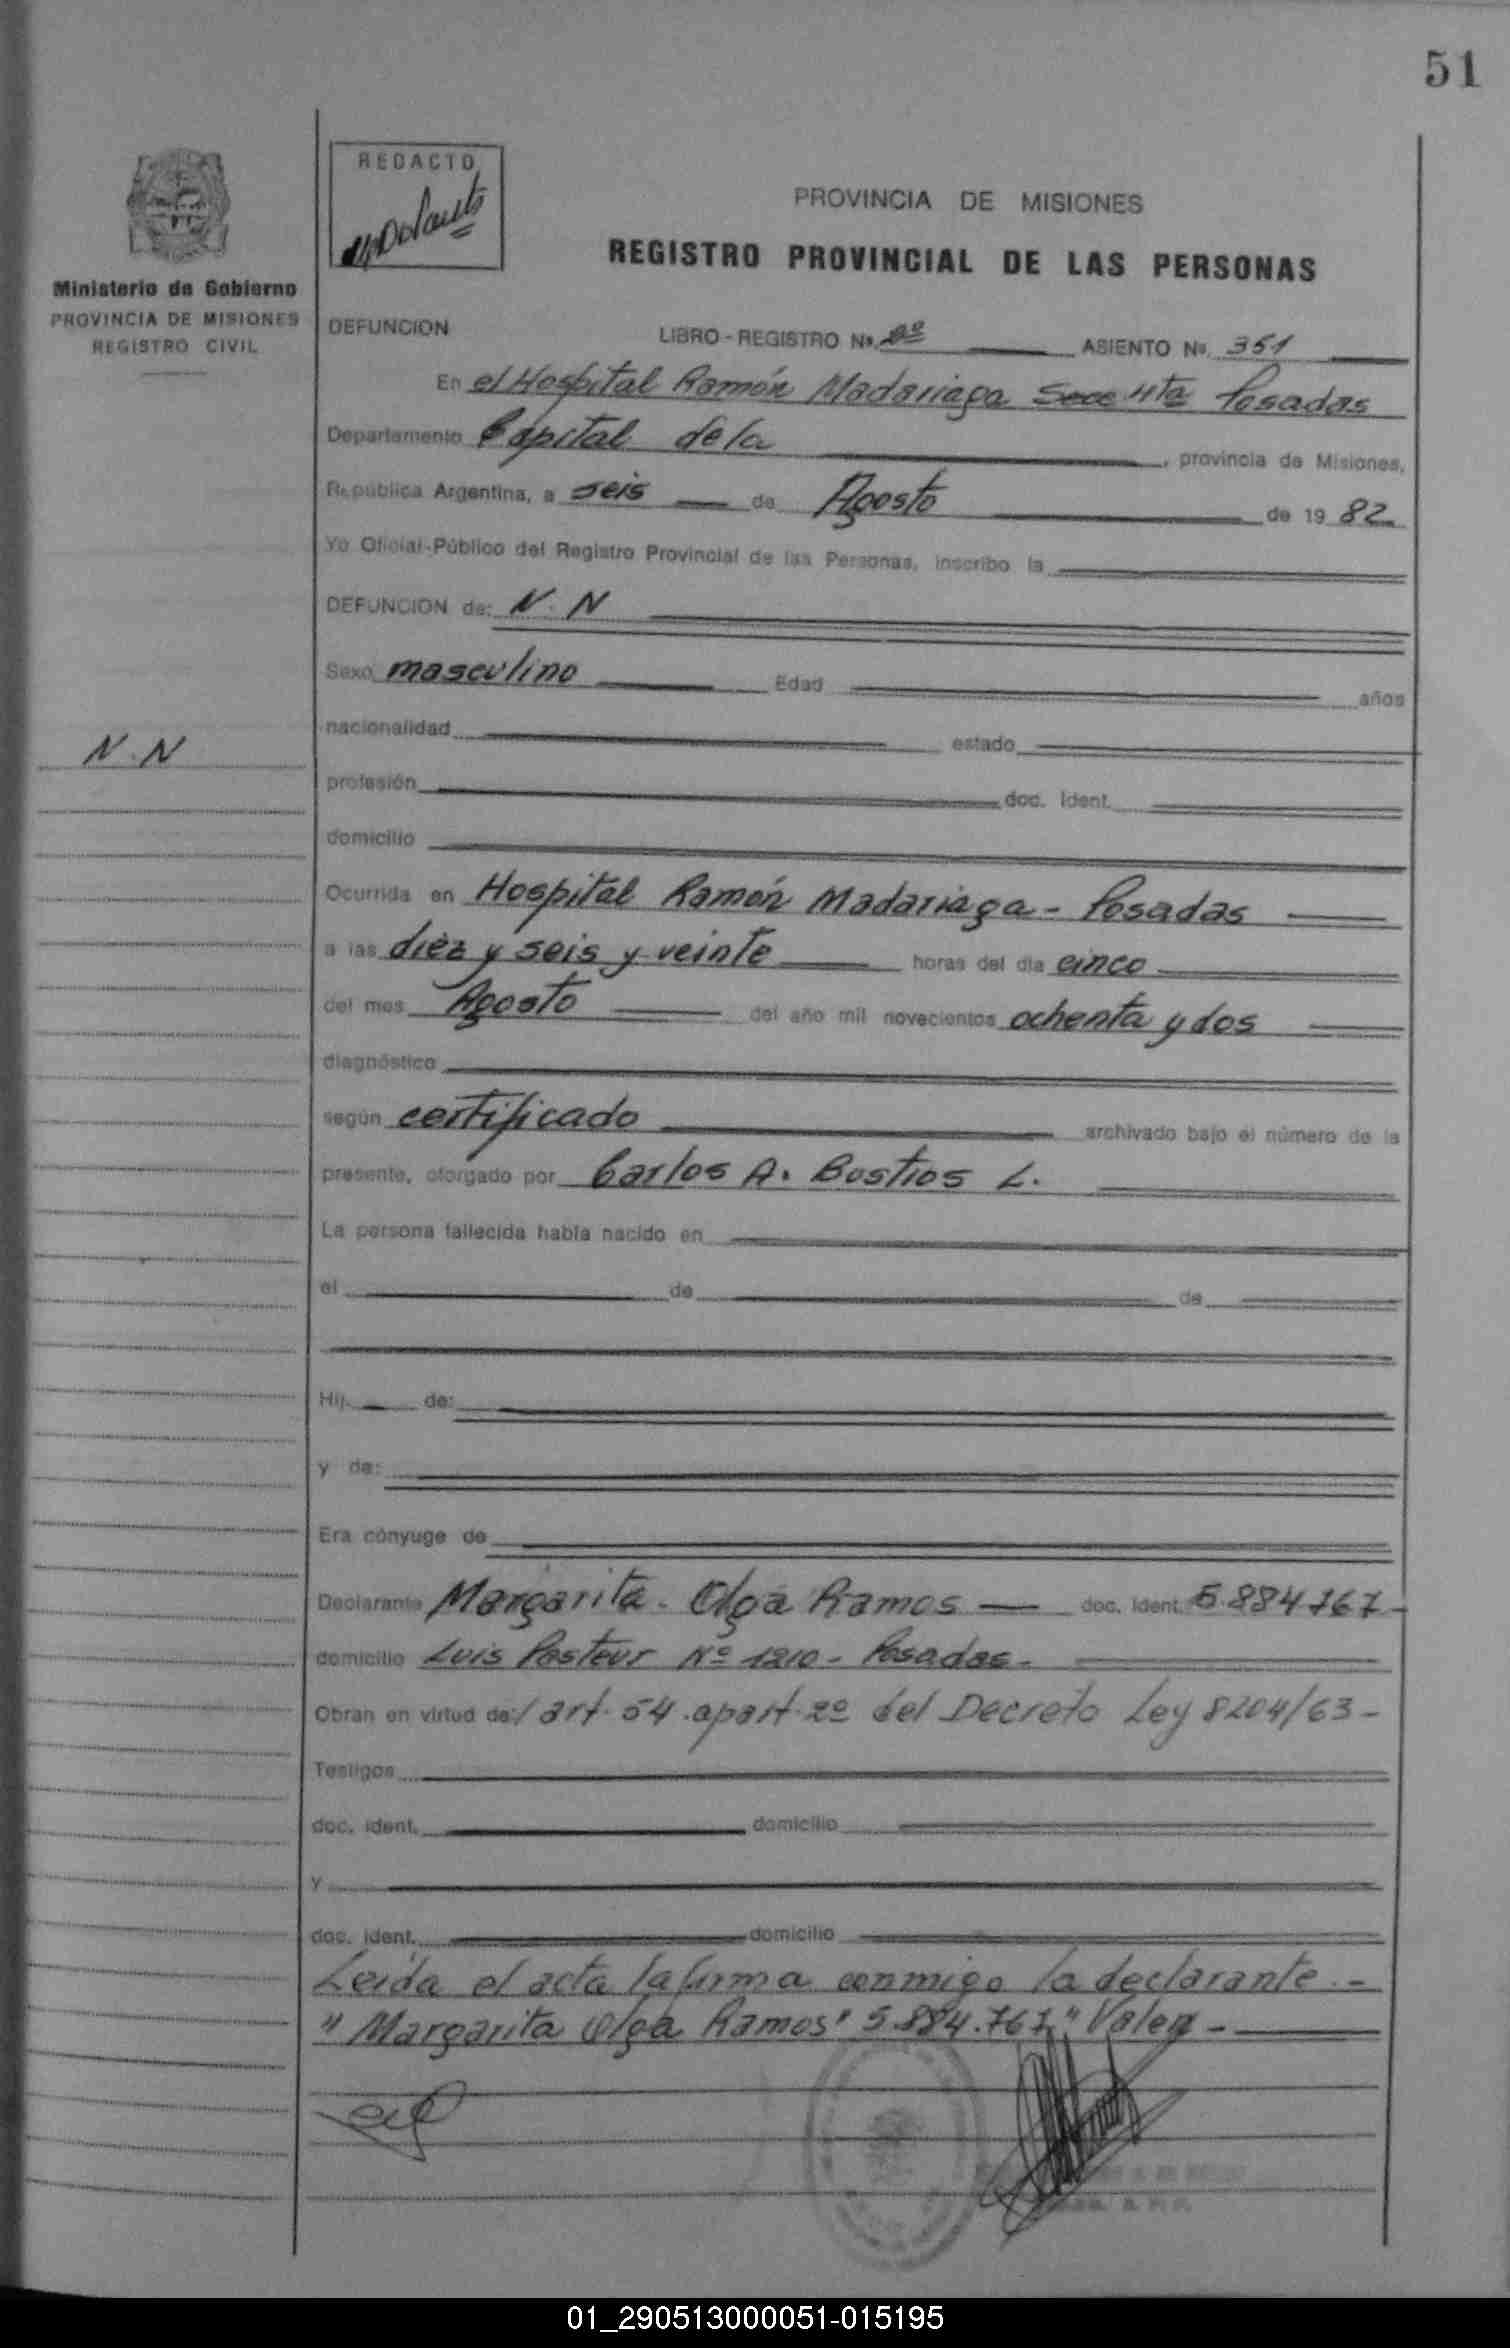 51
REDACTO
PROVINCIA DE MISIONES
REGISTRO PROVINCIAL DE LAS PERSONAS
Ministerio de Gobierno
PROVINCIA DE MISIONES
REGISTRO CIVIL
DEFUNCION LIBRO-REGISTRO Nº. 2º ASIENTO Nº. 351
En el Hospital Ramón Madariaga Secc 4ta Posadas
Departamento Capital de la , provincia de Misiones,
República Argentina, a seis de Agosto de 1982
Yo Oficial-Público del Registro Provincial de las Personas, inscribo la
DEFUNCION de: N.N
Sexo masculino Edad años
nacionalidad estado
N.N
profesión doc. Ident.
domicilio
Ocurrida en Hospital Ramón Madariaga - Posadas
a las diez y seis y veinte horas del día cinco
del mes Agosto del año mil novecientos ochenta y dos
diagnóstico
según certificado archivado bajo el número de la
presente, otorgado por Carlos A. Bustios L.
La persona fallecida había nacido en
el de de
Hij de:
y de:
Era cónyuge de
Declarante Margarita. Olga Ramos doc. Ident. 5.884.767-
domicilio Luis Pasteur Nº 1210 - Posadas-
Obran en virtud de:/ art. 54 .apart. 2º del Decreto Ley 8204/63-
Testigos
doc. ident. domicilio
y
doc. ident. domicilio
Leída el acta la firma conmigo la declarante.-
"Margarita Olga Ramos" 5.884.767" Valen-
01_290513000051-015195